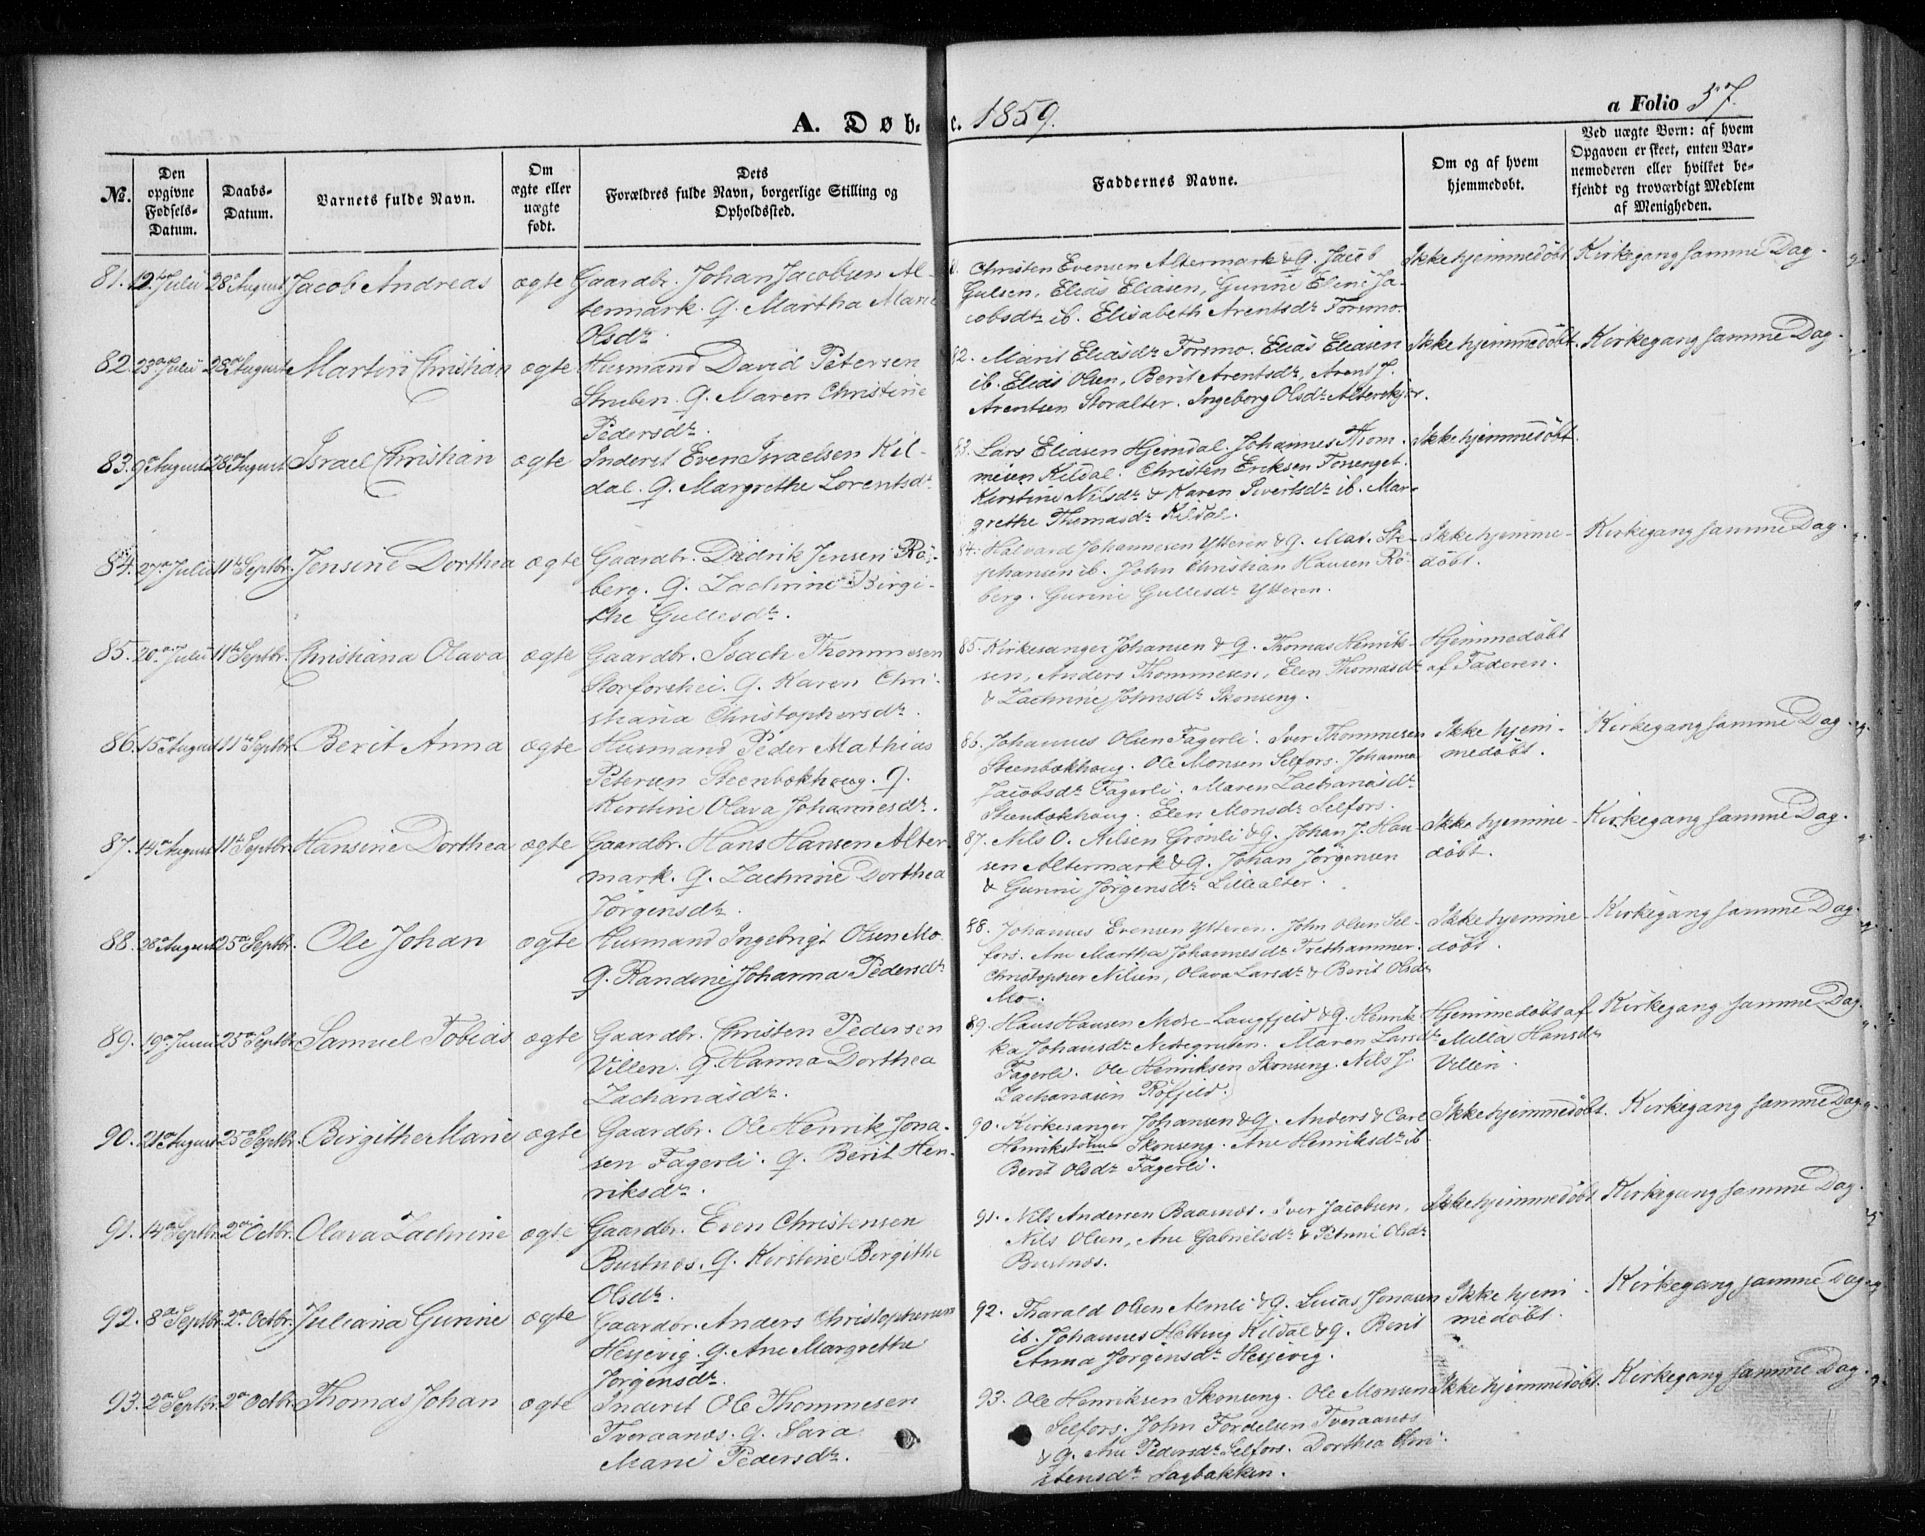 A. Døbte. 1859.
a Folio 57.
№.
Den opgivne Fødsels-Datum.
Daabs-Datum.
Barnets fulde Navn.
Om ægte eller uægte født.
Dets Forældres fulde Navn, borgerlige Stilling og Opholdssted.
Faddernes Navne.
Om og af hvem hjemmedøbt.
Ved uægte Børn: af hvem Opgaven er skeet, enten Barnemoderen eller hvilket bekjendt og troværdigt Medlem af Menigheden.
81. 12te Julii 28de August Jacob Andreas ægte Gaardbr. Johan Jacobsen Al-
termark. G. Martha Marie
Olsdr.
Christen Evensen Altermark & G. Jacob
Gulsen. Elias Eliasen, Gurine Eline Ja-
cobsdtr ib. Elisabeth Arentsdr Forsmo.
Ikke hjemmedøbt Kirkegang samme Dag.
82. 23de Julii 28de August Martin Christian ægte Husmand David Petersen
Struben. G. Maren Christine
Pedersdr.
82. Marit Eliasdr Forsmo. Elias Eliasen
ib. Elias Olsen, Berit Arentsdr, Arent J.
Arentsen Storalter. Ingeborg Olsdr Alterskjær.
Ikke hjemmedøbt. Kirkegang samme Dag.
83. 9de August 28de August Israel Christian ægte Inderst Even Israelsen Kil-
dal. G. Margrethe Lorentsdr
83. Lars Eliasen Hjemdal. Johannes Thom-
mesen Kildal. Christen Eriksen Forenget.
Kirstine Nilsdr & Karen Sivertsdr ib. Mar-
grethe Thomasdr Kildal.
Ikke hjemmedøbt.
84. 27de Julii 11te Septbr. Jensine Dorthea ægte Gaardbr. Didrik Jensen Rø-
berg. G. Zachrine Birgi-
the Gullesdr.
84. Halvard Johannesen Ytteren & G. Mar. Ste-
phansen ib. John Christian Hansen Rø-
berg. Gurine Gullesdr Ytteren.
Ikke hjemme-
døbt.
Kirkegang samme Dag.
85. 20de Julii 11te Septbr. Christiana Olava ægte Gaardbr. Isach Thommesen
Storforshei. G. Karen Chri-
stiana Christophersdr.
85. Kirkesanger Johansen & G. Thomas Henrik-
sen, Anders Thommesen, Elen Thomasdr
& Zachrine Johnsdr Skonseng.
Hjemmedøbt
af Faderen.
86. 15de August 11te Septbr. Berit Anna ægte Husmand Peder Mathias
Petersen Steenbækhaug. G.
Kirstine Olava Johannesdr.
86. Johannes Olsen Fagerli. Iver Thommesen
Steenbækhaug. Ole Monsen Selfors. Johanna
Jacobsdr Fagerli. Maren Zachariasdr
Steenbækhaug. Elen Monsdr Selfors.
Ikke hjem-
medøbt.
Kirkegang samme Dag.
87. 14de August 11te Septbr. Hansine Dorthea ægte Gaardbr. Hans Hansen Alter
mark. G. Zachrine Dorthea
Jørgensdr.
87. Nils O. Nilsen Grønli & G. Johan J. Han-
sen Altermark & G. Johan Jørgensen
& Gurine Jørgensdr Lillealter.
Ikke hjemme-
døbt.
Kirkegang samme Dag.
88. 28de August 25de Septbr. Ole Johan ægte Husmand Ingebrigt Olsen Mo
G. Randine Johanna Pedersdr
88. Johannes Evensen Ytteren. John Olsen Sel-
fors. Ane Martha Johannesdr Tretthammer.
Christopher Nilsen, Olava Larsdr & Berit Olsdr
Mo.
Ikke hjemme-
døbt.
Kirkegang samme Dag.
89. 19de Junii 25de Septbr. Samuel Tobias ægte Gaardbr. Christen Pedersen
Villen. G. Hanna Dorthea
Zachariasdr.
89. Hans Hansen Mose-Langfjeld & G. Henrik-
ka Johansdr Nedregruben. Maren Larsdr
Fagerli. Ole Henriksen Skonseng. Nils J.
Zachariasen Røfjeld.
Hjemmedøbt af
Milla Hansdr
Villen.
Kirkegang samme Dag.
90. 21de August 25de Septbr. Birgithe Marie ægte Gaardbr. Ole Henrik Jona-
sen Fagerli. G. Berit Hen-
riksdr.
90. Kirkesanger Johansen & G. Anders & Carl
Henrikssønner Skonseng. Ane Henriksdr ib
Berit Olsdr Fagerli.
Ikke hjemmedøbt. Kirkegang samme Dag.
91. 14de Septbr. 2den Octbr. Olava Zachrine ægte Gaardbr. Even Christensen
Bustnes. G. Kirstine Birgithe
Olsdr.
91. Nils Andersen Baasnes. Iver Jacobsen,
Nils Olsen, Ane Gabrielsdr & Petrine Olsdr
Bustnes.
Ikke hjemmedøbt Kirkegang samme Dag.
92. 8de Septbr. 2den Octbr. Juliana Gurine ægte Gaardbr. Anders Christophersen
Hesjevig. G. Ane Margrethe
Jørgensdr.
92. Tharald Olsen Almli & G. Lucas Jonasen
ib. Johannes Helling Kildal & G. Berit
Anna Jørgensdr Hesjevig.
Ikke hjem
medøbt.
Kirkegang samme Dag.
93. 2den Septbr. 2den Octbr. Thomas Johan ægte Inderst Ole Thommesen
Tveraanes. G. Sara
Marie Pedersdr.
93. Ole Henriksen Skonseng. Ole Monsen
Selfors. John Fordelsen Tveraanes
& G. Ane Pedersdr Selfors. Dorthea Chri-
stensdr Sagbakken.
Ikke hjemmedøbt. Kirkegang samme Dag.